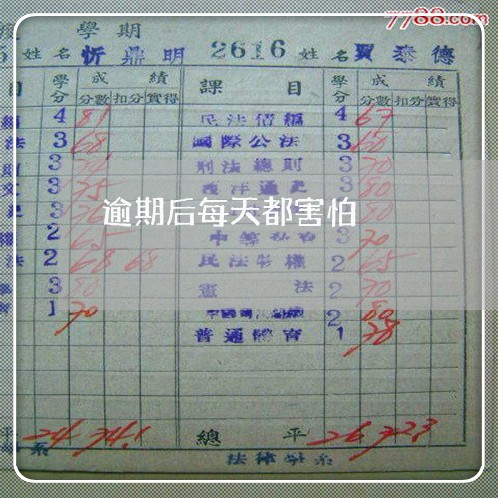 7788.com
學期
姓名 忻鼎明 2616 姓名 賈泰德
目 學分 成績 課目 學分 成績
分數 扣分 實得 分數 扣分 實得
4 81 民法債編 4 67
法 3 68 國際公法 3 60
3 刑法總則 3 70
3 75 西洋通史 3 80
逾期后每天都害怕
2 65 3 70
法 2 68 68 民法物權 2 65
3 80 憲法 2 70
1 70 2 80
普通體育 1 78
平 24 74.1 總平 26 72.3
系 法律學系